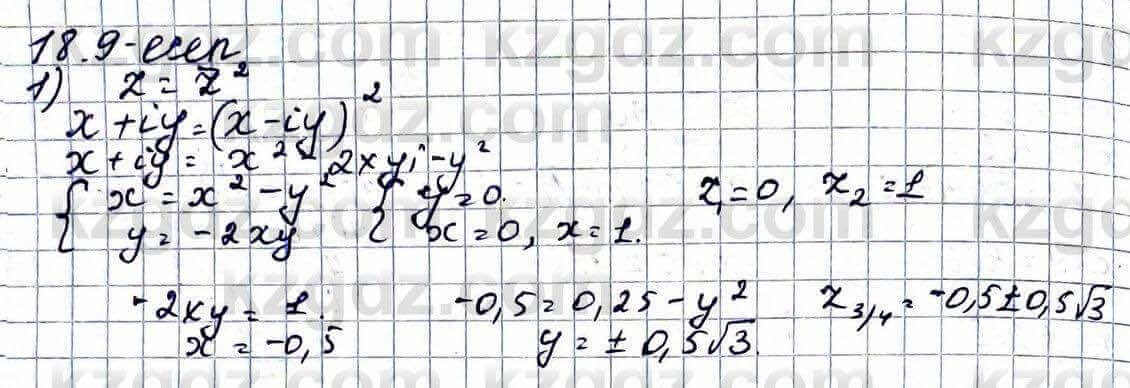 18.9-есеп
1) z = z̄²
x + iy = (x - iy)²
x + iy = x² - 2xyi - y²
{ x = x² - y² { y = 0. z₁ = 0, z₂ = 1
{ y = -2xy { x = 0, x = 1.
-2xy = 1. -0,5 = 0,25 - y² z₃/₄ = -0,5 ± 0,5√3
x = -0,5 y = ± 0,5√3.
kzgdz.com